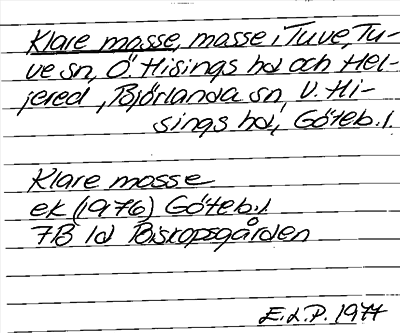 Klare mosse, mosse i Tuve, Tu-
ve sn, Ö. Hisings hd och Hel-
jered, Björlanda sn, V. Hi-
sings hd, Göteb. l.
Klare mosse
ek (1976) Göteb. l.
7B 1d Biskopsgården
E.d.P. 1977